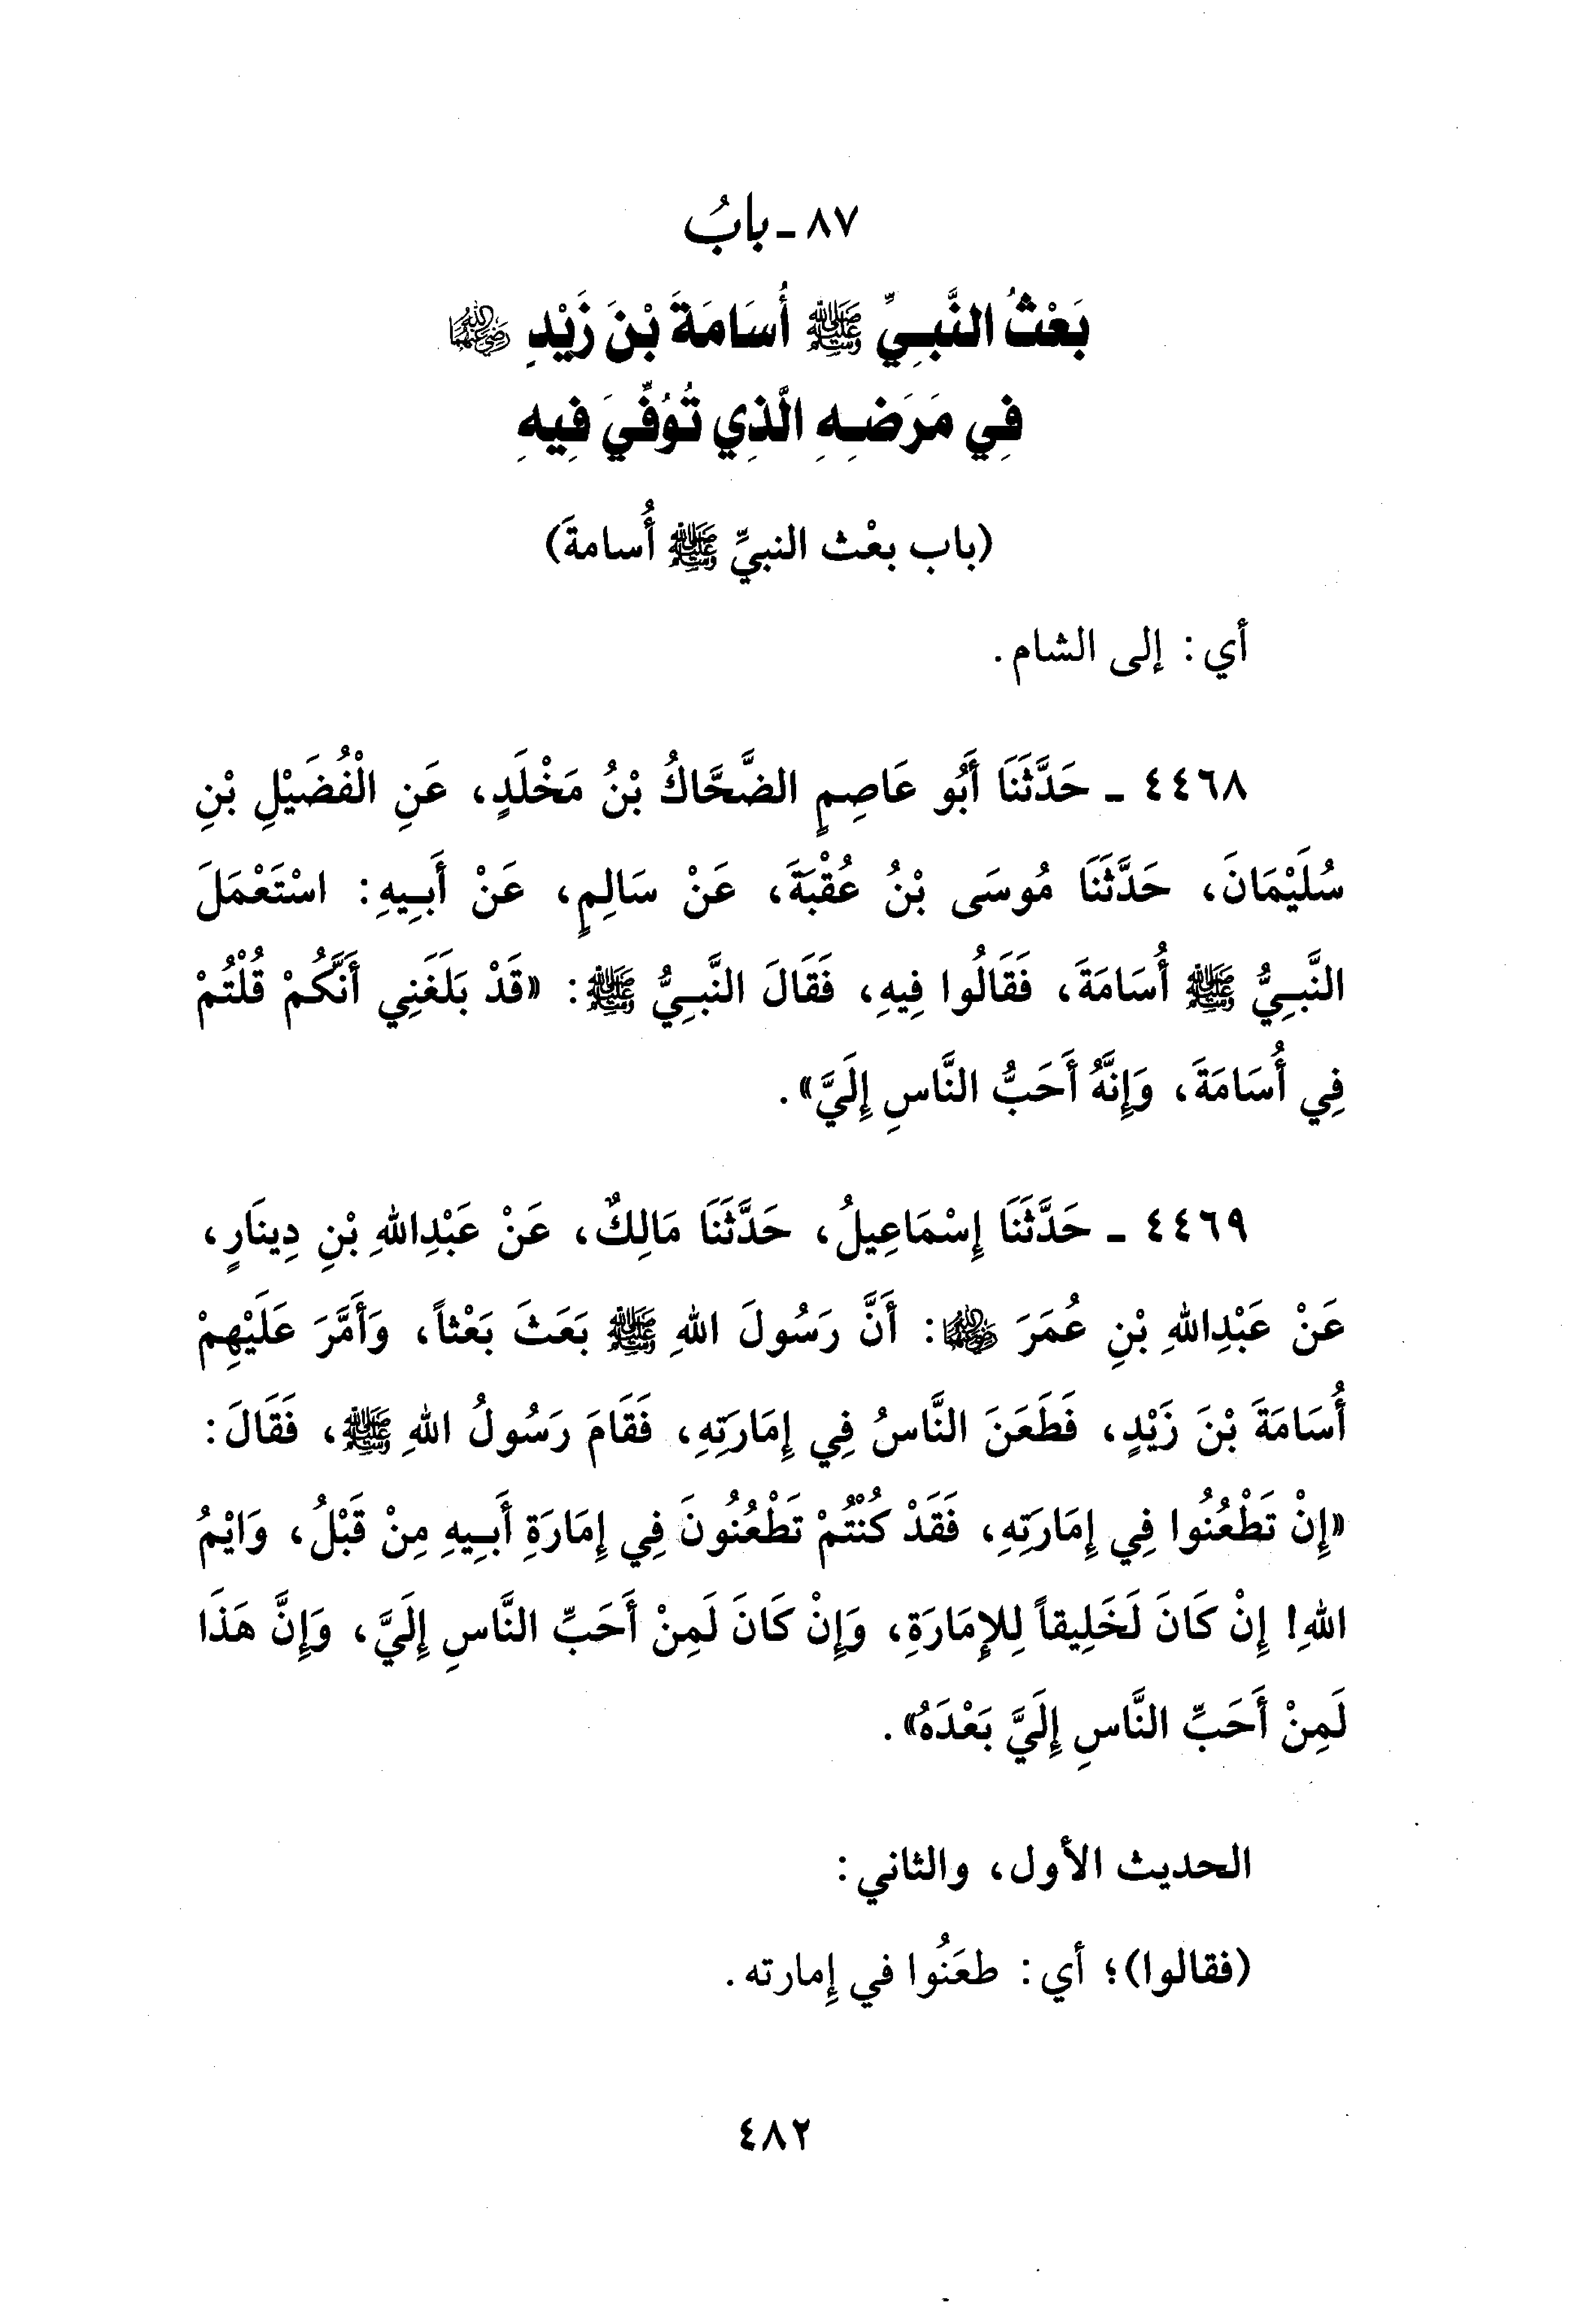 ٨٧ - بابُ
بَعْثُ النَّبِيِّ ﷺ أُسَامَةَ بْنَ زَيْدٍ رضي الله عنهما
فِي مَرَضِهِ الَّذِي تُوُفِّيَ فِيهِ
(باب بعْث النبيِّ ﷺ أُسامةَ)
أي: إلى الشام.
٤٤٦٨ - حَدَّثَنَا أَبُو عَاصِمٍ الضَّحَّاكُ بْنُ مَخْلَدٍ، عَنِ الْفُضَيْلِ بْنِ
سُلَيْمَانَ، حَدَّثَنَا مُوسَى بْنُ عُقْبَةَ، عَنْ سَالِمٍ، عَنْ أَبِيهِ: اسْتَعْمَلَ
النَّبِيُّ ﷺ أُسَامَةَ، فَقَالُوا فِيهِ، فَقَالَ النَّبِيُّ ﷺ: «قَدْ بَلَغَنِي أَنَّكُمْ قُلْتُمْ
فِي أُسَامَةَ، وَإِنَّهُ أَحَبُّ النَّاسِ إِلَيَّ».
٤٤٦٩ - حَدَّثَنَا إِسْمَاعِيلُ، حَدَّثَنَا مَالِكٌ، عَنْ عَبْدِاللهِ بْنِ دِينَارٍ،
عَنْ عَبْدِاللهِ بْنِ عُمَرَ رضي الله عنهما: أَنَّ رَسُولَ اللهِ ﷺ بَعَثَ بَعْثاً، وَأَمَّرَ عَلَيْهِمْ
أُسَامَةَ بْنَ زَيْدٍ، فَطَعَنَ النَّاسُ فِي إِمَارَتِهِ، فَقَامَ رَسُولُ اللهِ ﷺ، فَقَالَ:
«إِنْ تَطْعُنُوا فِي إِمَارَتِهِ، فَقَدْ كُنْتُمْ تَطْعُنُونَ فِي إِمَارَةِ أَبِيهِ مِنْ قَبْلُ، وَايْمُ
اللهِ! إِنْ كَانَ لَخَلِيقاً لِلإِمَارَةِ، وَإِنْ كَانَ لَمِنْ أَحَبِّ النَّاسِ إِلَيَّ، وَإِنَّ هَذَا
لَمِنْ أَحَبِّ النَّاسِ إِلَيَّ بَعْدَهُ».
الحديث الأول، والثاني:
(فقالوا)؛ أي: طعَنُوا في إِمارته.
٤٨٢